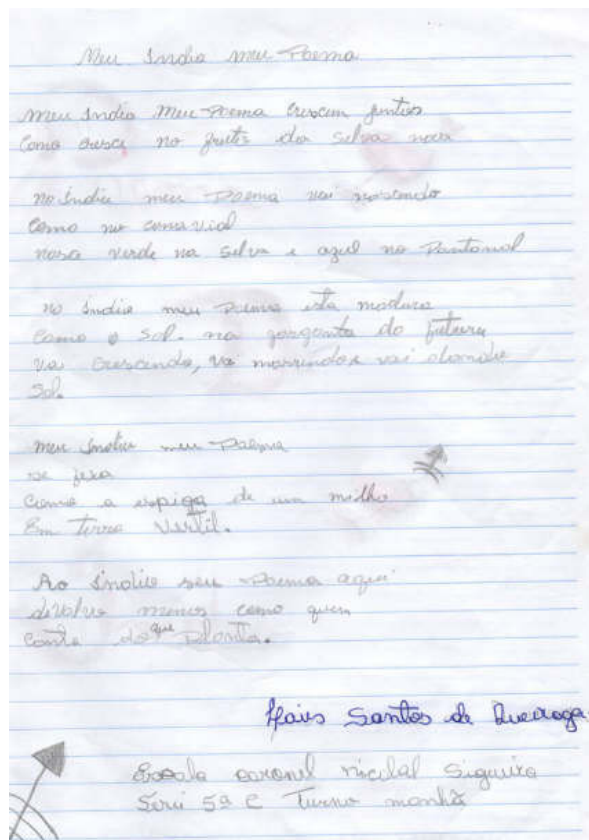 Meu Índio meu Poema
meu Índio Meu Poema crescem juntos
Como cresce no frutos da selva nova
no Índio meu Poema vai nascendo
Como no canavial
nasce verde na selva e azul no Pantanal
no Índio meu Poema esta maduro
Como o Sol. na garganta do futuro
vai crescendo, vai
Sol.
meu Índio meu Poema
se
Como a espiga de um milho
Em terra vertil.
Ao Índio seu Poema aqui
devolvo menos como quem
Canta do que planta.
Santos de Queiroga
Escola coronel nicolal Siqueira
Sérii 5ª C Turno manhã